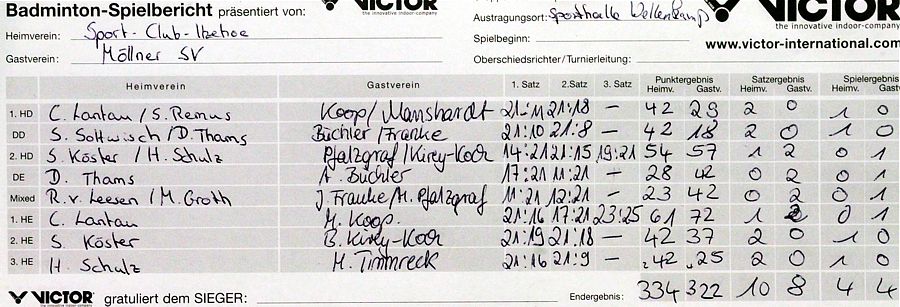 Badminton-Spielbericht präsentiert von: VICTOR the innovative indoor-company
Heimverein: Sport-Club-Itzehoe
Gastverein: Möllner SV
VICTOR the innovative indoor-company
Austragungsort: Sporthalle
Spielbeginn: www.victor-international.com
Oberschiedsrichter/Turnierleitung:
Heimverein Gastverein 1. Satz 2. Satz 3. Satz Punktergebnis Heimv. Gastv. Satzergebnis Heimv. Gastv. Spielergebnis Heimv. Gastv.
1. HD C. Lantau / S. Remus Koop / Manshardt 21:11 21:18 – 42 29 2 0 1 0
DD S. Sottwisch / D. Thams Büchler / Franke 21:10 21:8 – 42 18 2 0 1 0
2. HD S. Köster / H. Schulz Pfalzgraf / Kirey-Koor 14:21 21:15 19:21 54 57 1 2 0 1
DE D. Thams A. Büchler 17:21 11:21 – 28 42 0 2 0 1
Mixed R. v. Leesen / M. Groth J. Franke / M. Pfalzgraf 11:21 12:21 – 23 42 0 2 0 1
1. HE C. Lantau M. Koop. 21:16 17:21 23:25 61 72 1 2 0 1
2. HE S. Köster B. Kirey-Koor 21:19 21:18 – 42 37 2 0 1 0
3. HE H. Schulz M. Timmreck 21:16 21:9 – 42 25 2 0 1 0
VICTOR the innovative indoor-company gratuliert dem SIEGER: Endergebnis: 334 322 10 8 4 4